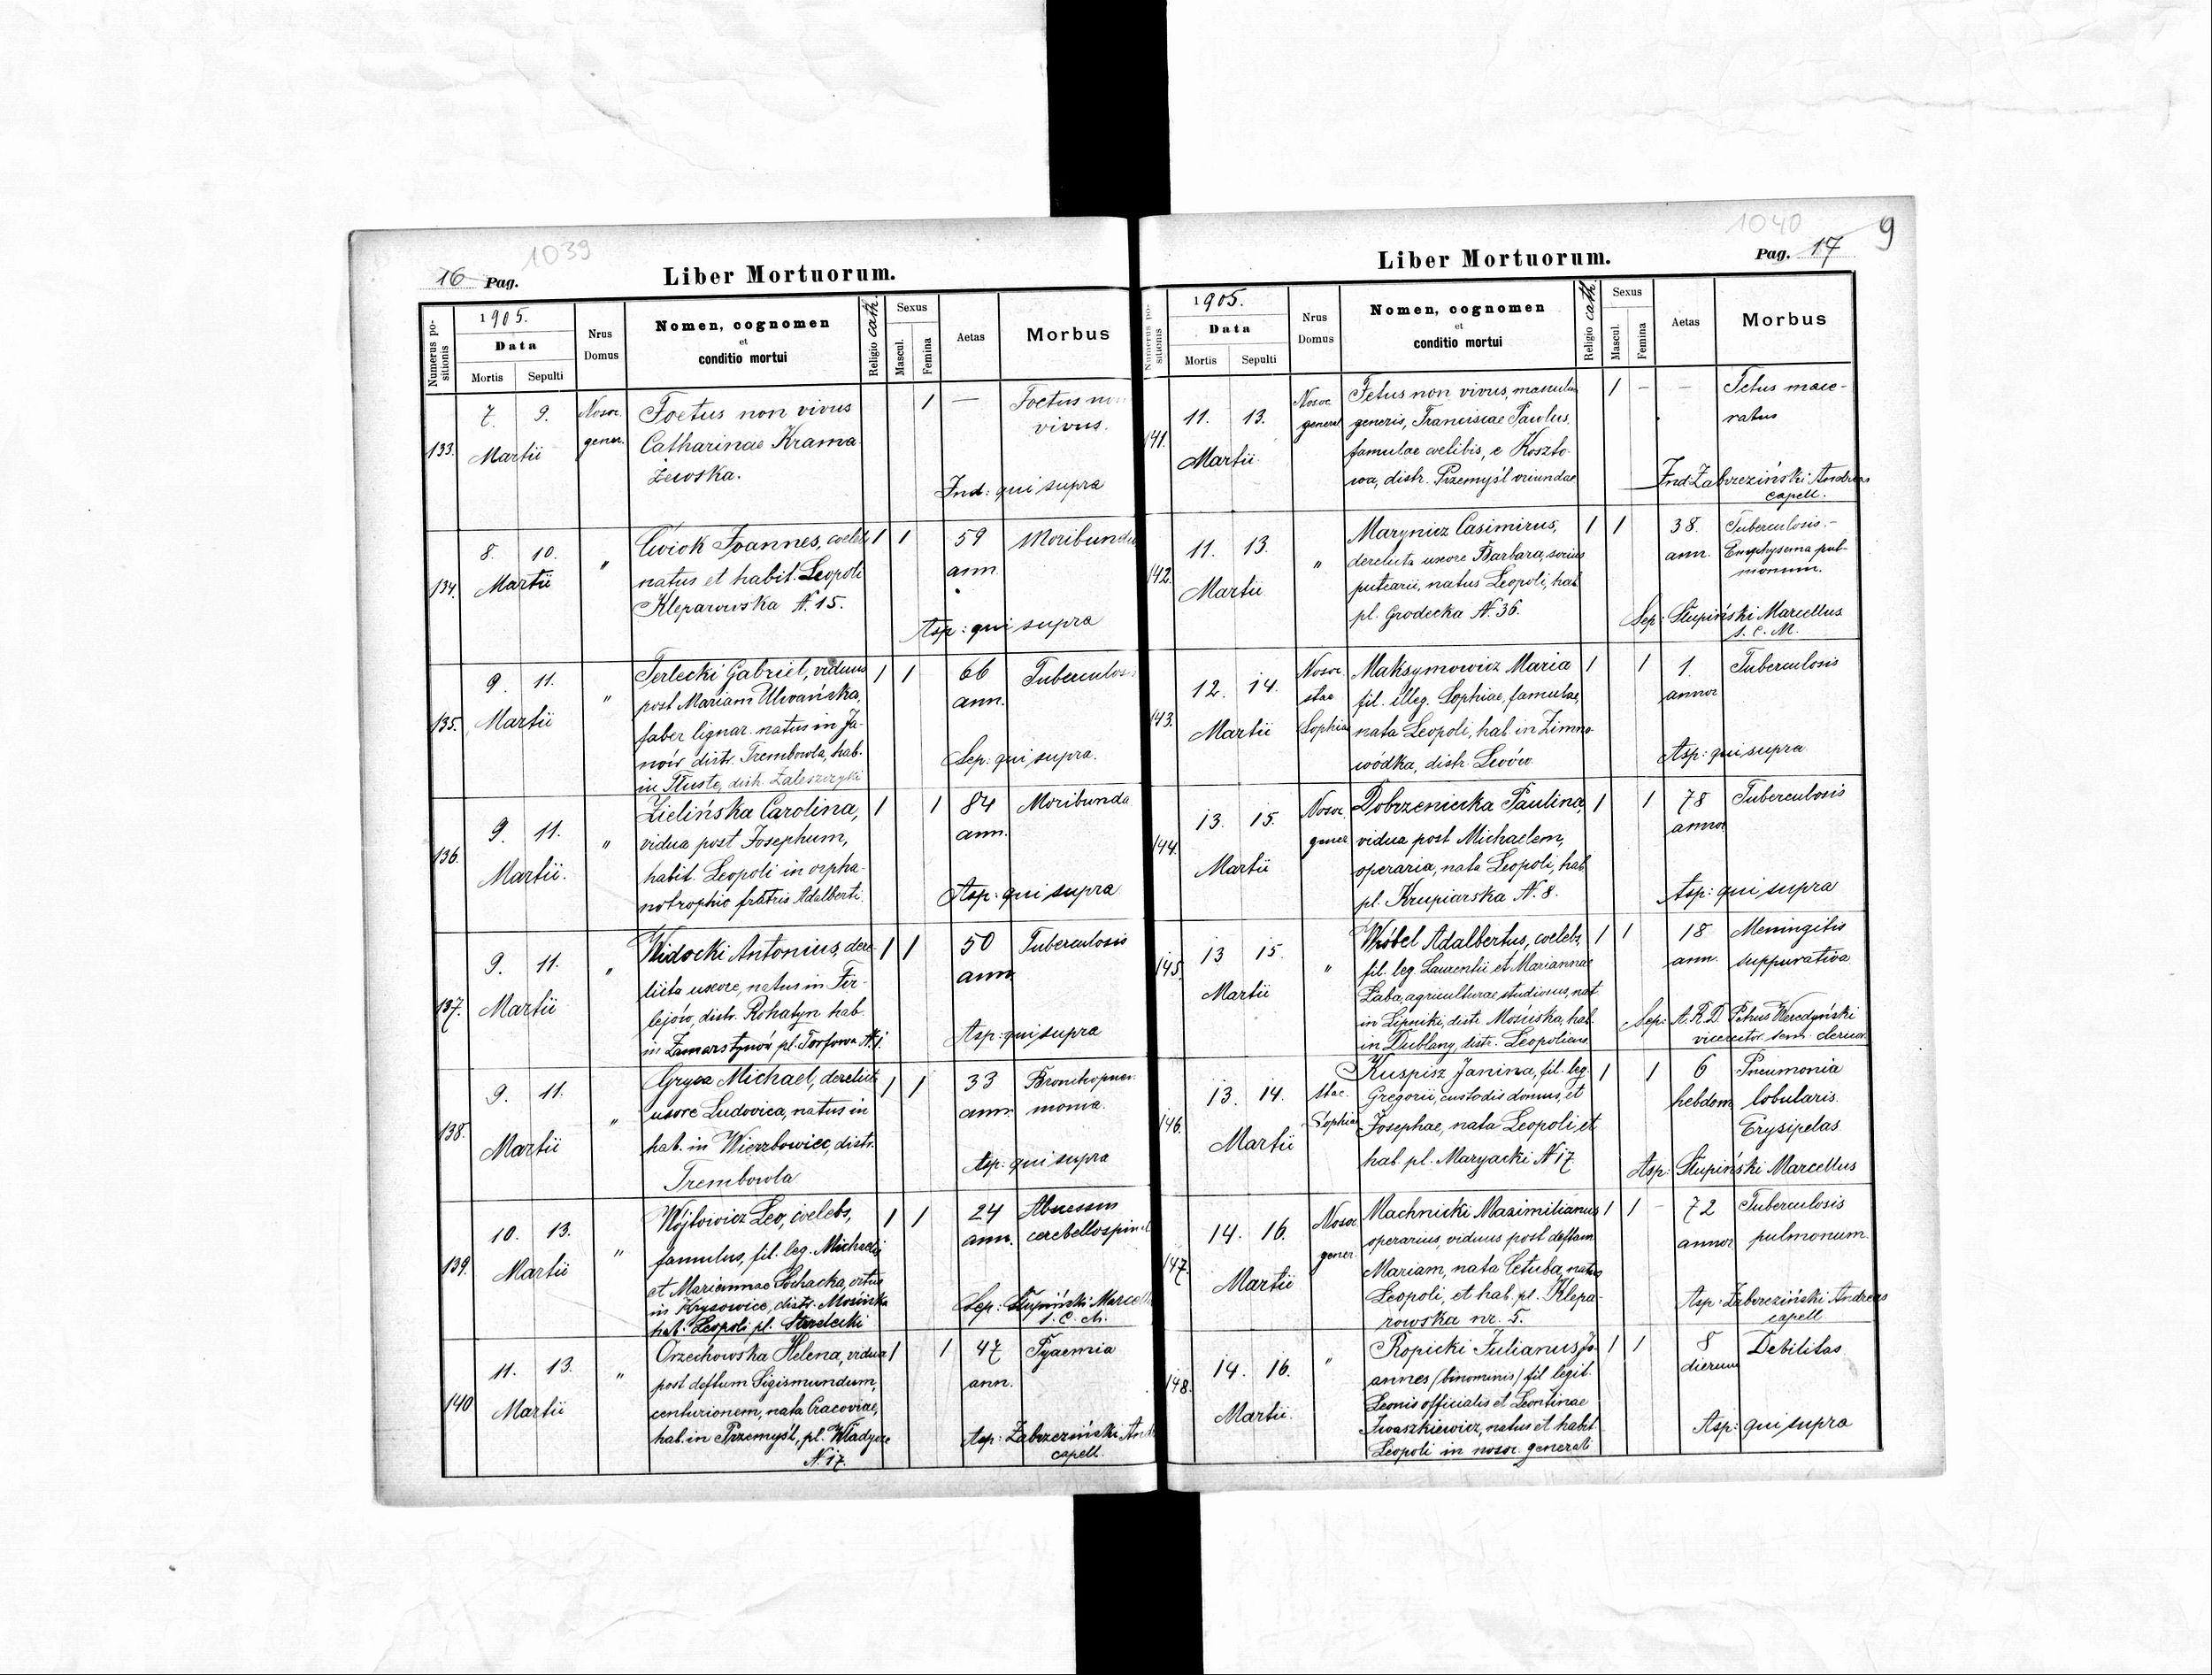 1039
16 Pag.
Liber Mortuorum.
Numerus positionis
1905.
Data
Mortis
Sepulti
Nrus Domus
Nomen, cognomen
et
conditio mortui
Religio cath.
Sexus
Mascul.
Femina
Aetas
Morbus
133.
7. 9.
Martii
Nosoc.
gener.
Foetus non vivus
Catharinae Krama-
żewska.
1
—
Foetus
vivus.
Ind: qui supra
134.
8. 10.
Martii
"
Ćwiok Joannes, coelebs
natus et habit. Leopoli
Kleparowska N. 15.
1 1
59
ann.
Moribundus
Asp: qui supra
135.
9. 11.
Martii
"
Terlecki Gabriel, viduus
post Mariam
faber lignar. natus in Ja-
nów distr. Trembowla, hab.
in Tłuste, distr. Zaleszczyki
1 1
66
ann.
Tuberculosis
Sep: qui supra.
136.
9. 11.
Martii.
"
Zielińska Carolina,
vidua post Josephum,
habit. Leopoli in orpha-
notrophio fratris Adalberti.
1 1
84
ann.
Moribunda
Asp: qui supra
137.
9. 11.
Martii
"
Widocki Antonius, dere-
licta uxore, natus in Fir-
lejów, distr. Rohatyn hab.
in Zamarstynów pl. Torfowa N. 1.
1 1
50
ann.
Tuberculosis
Asp: qui supra
138.
9. 11.
Martii
"
Gryza Michael, derelicta
uxore Ludovica, natus in
hab. in Wierzbowiec, distr.
Trembowla
1 1
33
ann.
Bronchopneu-
monia.
Asp: qui supra
139.
10. 13.
Martii
"
Wójtowicz Leo, coelebs,
famulus, fil. leg. Michaelis
et Mariannae Sochacka, ortus
in Krysowice, distr. Mościska
hab. Leopoli pl. Strzelecki
1 1
24
ann.
Abscessus
cerebellospinal
Sep: Słupiński Marcell
S. C. M.
140
11. 13.
Martii
"
Orzechowska Helena, vidua
post deftum Sigismundum,
centurionem, nata Cracoviae,
hab. in Przemyśl, pl. Władycze
N. 17.
1 1
47
ann.
Pyaemia
Asp: Zabrzeziński And
capell.
1040
9
Liber Mortuorum.
Pag. 17
Numerus positionis
1905.
Data
Mortis
Sepulti
Nrus Domus
Nomen, cognomen
et
conditio mortui
Religio cath.
Sexus
Mascul.
Femina
Aetas
Morbus
141.
11. 13.
Martii
Nosoc
general
Fetus non vivus, masculin
generis, Franciscae Paulus,
famulae coelibis, e Koszto-
wa, distr. Przemyśl oriundae
1 — —
Fetus mace-
ratus
Ind: Zabrzeziński Andreas
capell.
142.
11. 13.
Martii
"
Marynicz Casimirus,
derelicta uxore Barbara, socius
putearii, natus Leopoli, hab
pl. Grodecka N. 36.
1 1
38.
ann.
Tuberculosis.—
Emphysema pul-
monum.
Sep: Słupiński Marcellus
S. C. M.
143.
12. 14.
Martii
Nosoc.
stae
Sophiae
Maksymowicz Maria
fil. illeg. Sophiae, famulae,
nata Leopoli, hab in Zimno-
wódka, distr. Lwów
1 1
1.
annor
Tuberculosis
Asp: qui supra
144.
13. 15.
Martii
Nosoc.
gener
Dobrzeniecka Paulina,
vidua post Michaelem,
operaria, nata Leopoli, hab
pl. Krupiarska N. 8.
1 1
78
annor
Tuberculosis
Asp: qui supra
145.
13 15.
Martii
"
Wróbel Adalbertus, coelebs,
fil. leg. Laurentii et Mariannae
Żaba, agriculturae studiosus, nat
in Lipniki, distr. Mościska, hab.
in Dublany, distr. Leopoliens
1 1
18
ann.
Meningitis
suppurativa
Sep: A. R. D. Petrus Weredyński
vicerector sem cleric.
146.
13. 14.
Martii
stae.
Sophiae
Kuspisz Janina, fil. leg
Gregorii, custodis domus, et
Josephae, nata Leopoli et
hab. pl. Maryacki N 17
1 1
6
hebdom
Pneumonia
lobularis.
Erysipelas
Asp: Słupiński Marcellus
147.
14. 16.
Martii
Nosoc
gener.
Machnicki Maximilianus
operarius, viduus post deftam
Mariam, nata Cetuba, natus
Leopoli, et hab. pl. Klepa-
rowska nr. 5.
1 1 —
72
annor
Tuberculosis
pulmonum.
Asp: Zabrzeziński Andreas
capell
148.
14. 16.
Martii.
"
Ropicki Julianus Jo-
annes (binominis) fil legit.
Leonis officialis et Leontinae
Iwaszkiewicz, natus et habit
Leopoli in nosoc. generali
1 1
8
dierum
Debilitas
Asp: qui supra